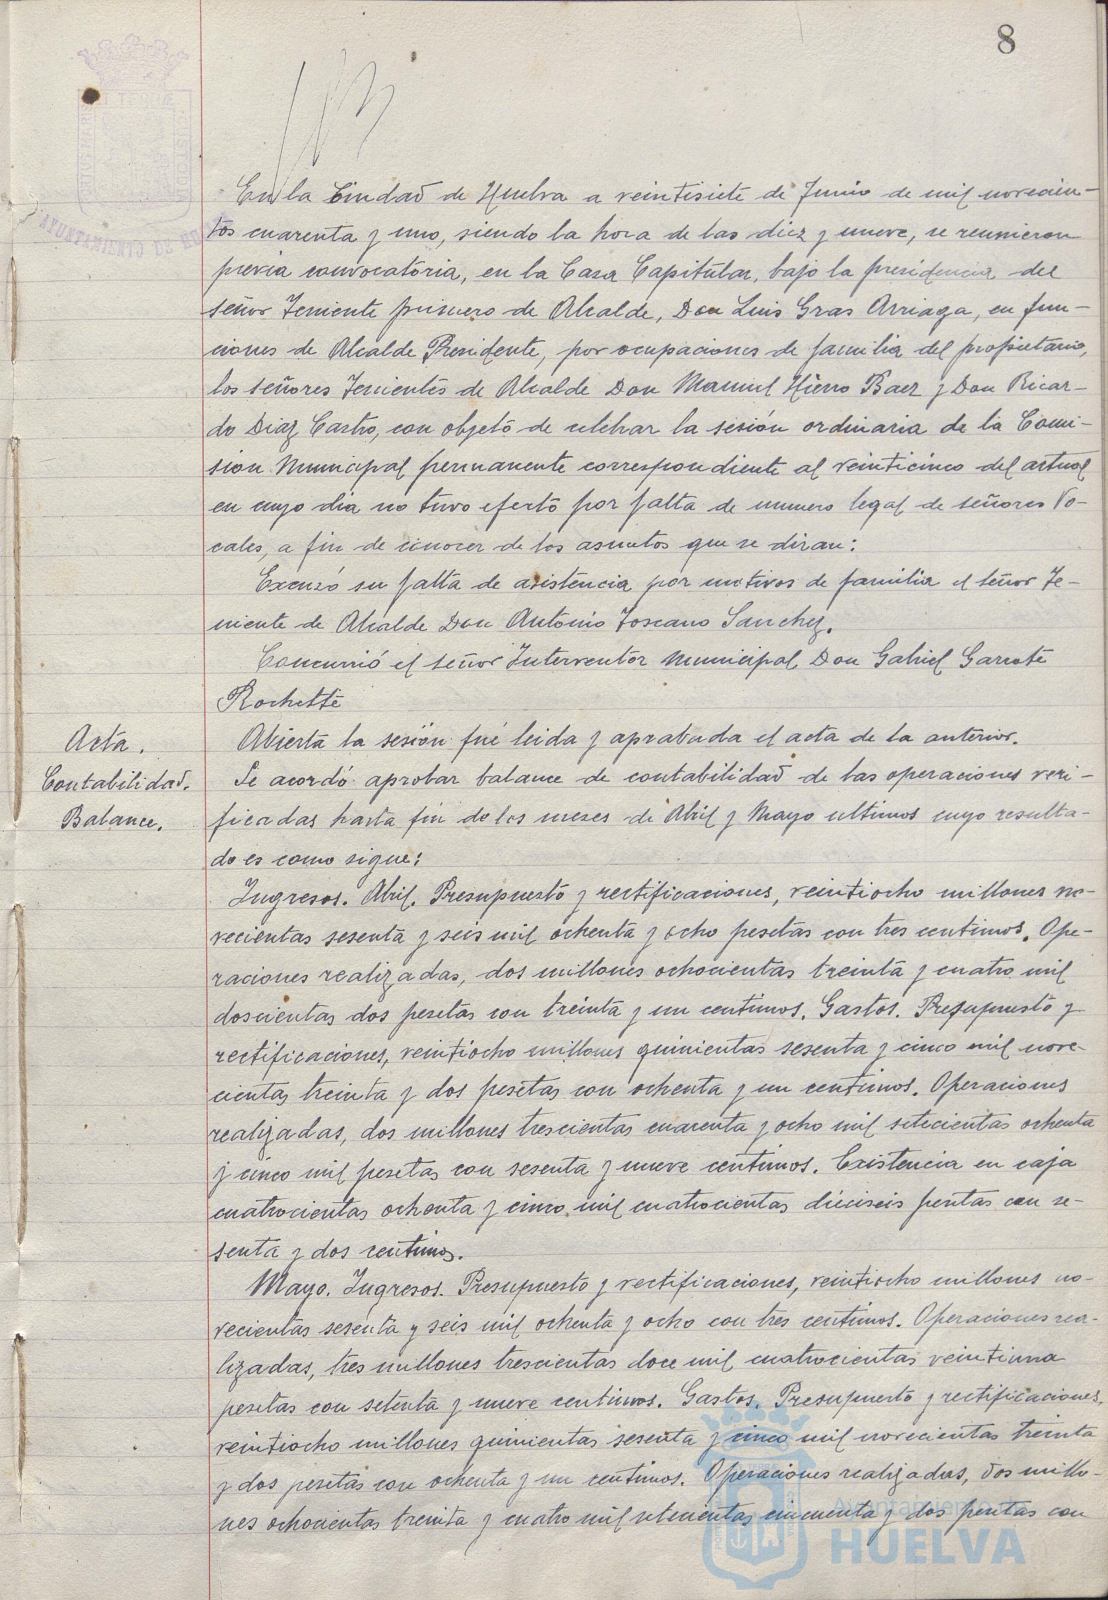 8
En la Ciudad de Huelva a veintisiete de Junio de mil novecien-
tos cuarenta y uno, siendo la hora de las diez y nueve, se reunieron
previa convocatoria, en la Casa Capitular, bajo la presidencia del
señor Teniente primero de Alcalde, Don Luis Gras Arriaga, en fun-
ciones de Alcalde Presidente, por ocupaciones de familia del propietario,
los señores Tenientes de Alcalde Don Manuel Hierro Baez y Don Ricar-
do Diaz Castro, con objeto de celebrar la sesión ordinaria de la Comi-
sion Municipal permanente correspondiente al veinticinco del actual
en cuyo dia no tuvo efecto por falta de numero legal de señores Vo-
cales, a fin de conocer de los asuntos que se diran:
Excusó su falta de asistencia por motivos de familia el señor Te-
niente de Alcalde Don Antonio Toscano Sanchez.
Concurrió el señor Interventor Municipal Don Gabriel Garrote
Rochette
Acta.
Abierta la sesión fué leida y aprobada el acta de la anterior.
Contabilidad.
Balance.
Se acordó aprobar balance de contabilidad de las operaciones veri-
ficadas hasta fin de los meses de Abril y Mayo ultimos cuyo resulta-
do es como sigue:
Ingresos. Abril. Presupuesto y rectificaciones, veintiocho millones no-
vecientas sesenta y seis mil ochenta y ocho pesetas con tres centimos. Ope-
raciones realizadas, dos millones ochocientas treinta y cuatro mil
doscientas dos pesetas con treinta y un centimos. Gastos. Presupuesto y
rectificaciones, veintiocho millones quinientas sesenta y cinco mil nove-
cientas treinta y dos pesetas con ochenta y un centimos. Operaciones
realizadas, dos millones trescientas cuarenta y ocho mil setecientas ochenta
y cinco mil pesetas con sesenta y nueve centimos. Existencia en caja
cuatrocientas ochenta y cinco mil cuatrocientas dieciseis pesetas con se-
senta y dos centimos.
Mayo. Ingresos. Presupuesto y rectificaciones, veintiocho millones no-
vecientas sesenta y seis mil ochenta y ocho con tres centimos. Operaciones rea-
lizadas, tres millones trescientas doce mil cuatrocientas veintiuna
pesetas con setenta y nueve centimos. Gastos. Presupuesto y rectificaciones,
veintiocho millones quinientas sesenta y cinco mil novecientas treinta
y dos pesetas con ochenta y un centimos. Operaciones realizadas, dos millo-
nes ochocientas treinta y cuatro mil setecientas cincuenta y dos pesetas con
Ayuntamiento de
HUELVA